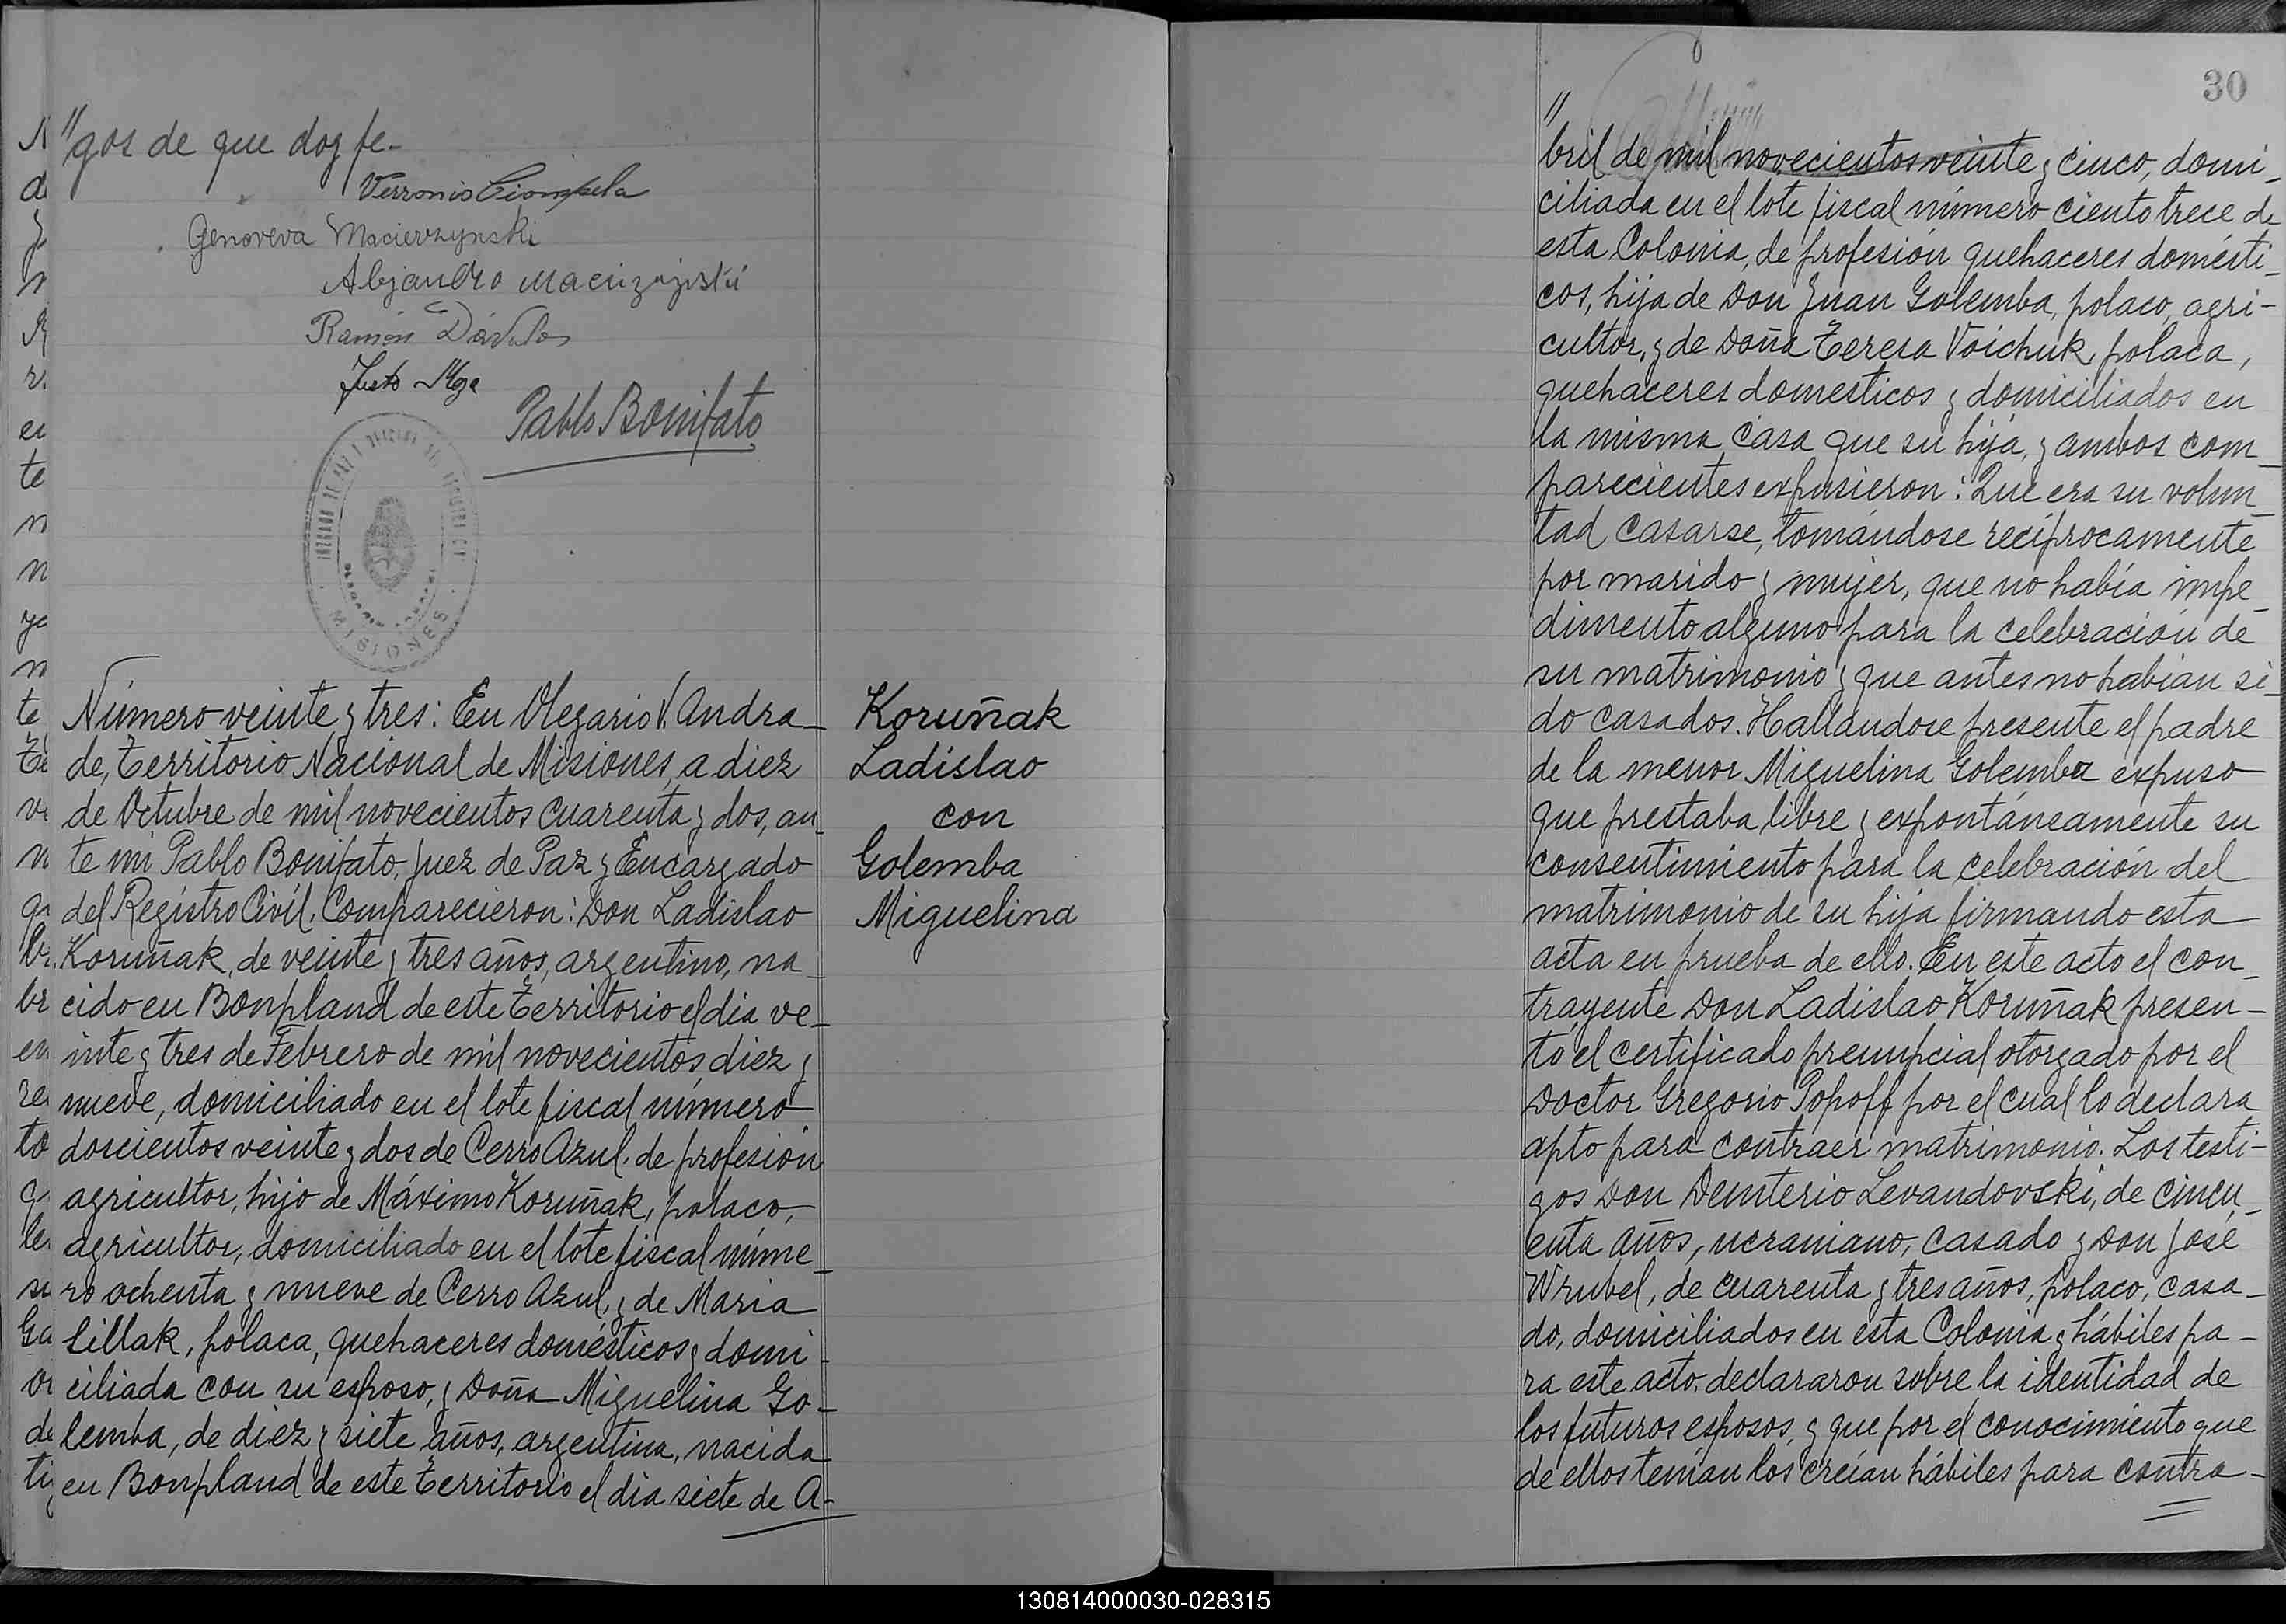 "gos de que doy fe.-
Genoveva Macierzynski
Ramón Dávalos
Justo
Pablo Bonifato
MISIONES
Número veinte y tres: En Olegario V. Andra-
de, Territorio Nacional de Misiones, a diez
de Octubre de mil novecientos cuarenta y dos, an-
te mi Pablo Bonifato, Juez de Paz y Encargado
del Registro Civil. Comparecieron: Don Ladislao
Koruñak, de veinte y tres años, argentino, na-
cido en Bonpland de este Territorio el dia ve-
inte y tres de Febrero de mil novecientos diez y
nueve, domiciliado en el lote fiscal número
doscientos veinte y dos de Cerro Azul, de profesión
agricultor, hijo de Máximo Koruñak, polaco,
agricultor, domiciliado en el lote fiscal núme-
ro ochenta y nueve de Cerro Azul, y de Maria
Lillak, polaca, quehaceres domésticos y domi-
ciliada con su esposo, y Doña Miguelina Go-
lemba, de diez y siete años, argentina, nacida
en Bonpland de este Territorio el dia siete de A-
Koruñak
Ladislao
con
Golemba
Miguelina
30
"
bril de mil novecientos veinte y cinco, domi-
ciliada en el lote fiscal número ciento trece de
esta Colonia, de profesión quehaceres domésti-
cos, hija de Don Juan Golemba, polaco, agri-
cultor, y de Doña Teresa Voichuk, polaca,
quehaceres domesticos y domiciliados en
la misma casa que su hija, y ambos com-
parecientes expusieron: Que era su volun-
tad casarse, tomándose recíprocamente
por marido y mujer, que no había impe-
dimento alguno para la celebración de
su matrimonio y que antes no habian si-
do casados. Hallandose presente el padre
de la menor Miguelina Golemba expuso
que prestaba libre y expontáneamente su
consentimiento para la celebración del
matrimonio de su hija firmando esta
acta en prueba de ello. En este acto el con-
trayente Don Ladislao Koruñak presen-
to el certificado prenupcial otorgado por el
Doctor Gregorio Popoff por el cual lo declara
apto para contraer matrimonio. Los testi-
gos Don Demterio Levandovski, de cincu-
enta años, ucraniano, casado y Don José
Wrubel, de cuarenta y tres años, polaco, casa-
do, domiciliados en esta Colonia y hábiles pa-
ra este acto, declararon sobre la identidad de
los futuros esposos, y que por el conocimiento que
de ellos tenían los creían hábiles para contra-
130814000030-028315